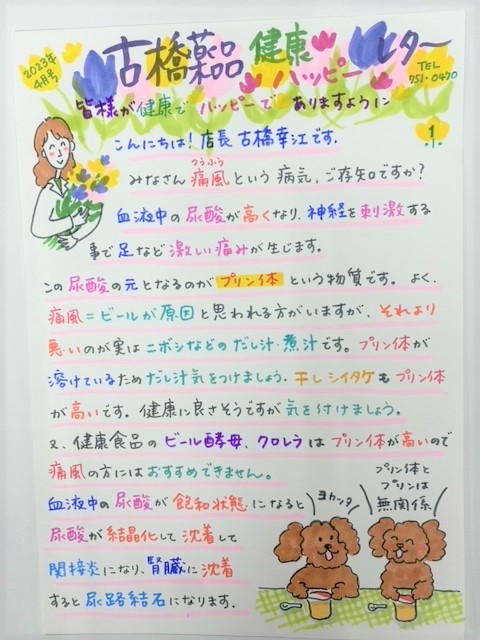 2023年
4月号
古橋薬品 健康ハッピーレター
TEL
751-0470
皆様が健康でハッピーでありますように
1
こんにちは!店長 古橋幸江です.
つうふう
みなさん 痛風という病気,ご存知ですか?
血液中の尿酸が高くなり,神経を刺激する
事で足など激しい痛みが生じます。
この尿酸の元となるのがプリン体という物質です。よく,
痛風=ビールが原因と思われる方がいますが,それより
悪いのが実はニボシなどのだし汁・煮汁です。プリン体が
溶けているためだし汁気をつけましょう.干しシイタケもプリン体
が高いです。健康に良さそうですが気を付けましょう。
又、健康食品のビール酵母、クロレラはプリン体が高いので
痛風の方にはおすすめできません。
血液中の尿酸が飽和状態になると
尿酸が結晶化して沈着して
関接炎になり、腎臓に沈着
すると尿路結石になります.
ヨカッタ
プリン体と
プリンは
無関係